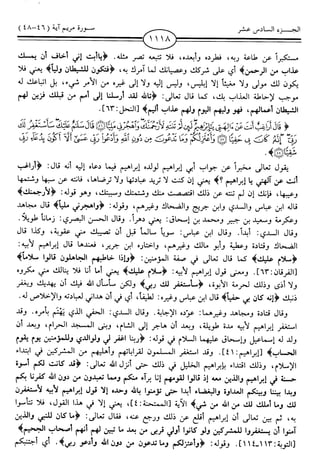 الجـزء السادس عشر
سورة مريم آية (٤٦-٤٨)
١١١٨
مستكبراً عن طاعة ربه، فطرده وأبعده، فلا تتبعه تصر مثله. ﴿يا أبت إني أخاف أن يمسك
عذاب من الرحمن﴾ أي على شركك وعصيانك لما آمرك به، ﴿فتكون للشيطان ولياً﴾ يعني فلا
يكون لك مولى ولا مغيثاً إلا إبليس، وليس إليه ولا إلى غيره من الأمر شيء، بل اتباعك له
موجب لإحاطة العذاب بك، كما قال تعالى: ﴿تالله لقد أرسلنا إلى أمم من قبلك فزين لهم
الشيطان أعمالهم، فهو وليهم اليوم ولهم عذاب أليم﴾ [النحل: ٦٣].
﴿ قَالَ أَرَاغِبٌ أَنتَ عَنْ ءَالِهَتِي يَٰٓإِبْرَٰهِيمُ لَئِن لَّمْ تَنتَهِ لَأَرْجُمَنَّكَ وَٱهْجُرْنِي مَلِيًّا ۝ قَالَ سَلَٰمٌ عَلَيْكَ سَأَسْتَغْفِرُ لَكَ
رَبِّيٓ إِنَّهُۥ كَانَ بِي حَفِيًّا ۝ وَأَعْتَزِلُكُمْ وَمَا تَدْعُونَ مِن دُونِ ٱللَّهِ وَأَدْعُواْ رَبِّي عَسَىٰٓ أَلَّآ أَكُونَ بِدُعَآءِ رَبِّي
شَقِيًّا ۝﴾
يقول تعالى مخبراً عن جواب أبي إبراهيم لولده إبراهيم فيما دعاه إليه أنه قال: ﴿أراغب
أنت عن آلهتي يا إبراهيم﴾؟ يعني إن كنت لا تريد عبادتها ولا ترضاها، فانته عن سبها وشتمها
وعيبها، فإنك إن لم تنته عن ذلك اقتصصت منك وشتمتك وسببتك، وهو قوله: ﴿لأرجمنك﴾
قاله ابن عباس والسدي وابن جريج والضحاك وغيرهم، وقوله: ﴿واهجرني ملياً﴾ قال مجاهد
وعكرمة وسعيد بن جبير ومحمد بن إسحاق: يعني دهراً. وقال الحسن البصري: زماناً طويلاً.
وقال السدي: أبداً. وقال ابن عباس: سوياً سالماً قبل أن تصيبك مني عقوبة، وكذا قال
الضحاك وقتادة وعطية وأبو مالك وغيرهم، واختاره ابن جرير، فعندها قال إبراهيم لأبيه:
﴿سلام عليك﴾ كما قال تعالى في صفة المؤمنين: ﴿وإذا خاطبهم الجاهلون قالوا سلاماً﴾
[الفرقان: ٦٣]. ومعنى قول إبراهيم لأبيه: ﴿سلام عليك﴾ يعني أما أنا فلا ينالك مني مكروه
ولا أذى وذلك لحرمة الأبوة، ﴿سأستغفر لك ربي﴾ ولكن سأسأل الله فيك أن يهديك ويغفر
ذنبك ﴿إنه كان بي حفياً﴾ قال ابن عباس وغيره: لطيفاً، أي في أن هداني لعبادته والإخلاص له.
وقال قتادة ومجاهد وغيرهما: عوّده الإجابة. وقال السدي: الحفي الذي يَهْتَمّ بأمره. وقد
استغفر إبراهيم لأبيه مدة طويلة، وبعد أن هاجر إلى الشام، وبنى المسجد الحرام، وبعد أن
ولد له إسماعيل وإسحاق عليهما السلام في قوله: ﴿ربنا اغفر لي ولوالدي وللمؤمنين يوم يقوم
الحساب﴾ [إبراهيم: ٤١]. وقد استغفر المسلمون لقراباتهم وأهليهم من المشركين في ابتداء
الإسلام، وذلك اقتداء بإبراهيم الخليل في ذلك حتى أنزل الله تعالى: ﴿قد كانت لكم أسوة
حسنة في إبراهيم والذين معه إذ قالوا لقومهم إنا برآء منكم ومما تعبدون من دون الله كفرنا بكم
وبدا بيننا وبينكم العداوة والبغضاء أبدا حتى تؤمنوا بالله وحده إلا قول إبراهيم لأبيه لأستغفرن
لك وما أملك لك من الله من شيء﴾ الآية [الممتحنة: ٤]، يعني إلا في هذا القول، فلا تتأسوا
به، ثم بين تعالى أن إبراهيم أقلع عن ذلك ورجع عنه، فقال تعالى: ﴿ما كان للنبي والذين
آمنوا أن يستغفروا للمشركين ولو كانوا أولي قربى من بعد ما تبين لهم أنهم أصحاب الجحيم﴾
[التوبة: ١١٣-١١٤]. وقوله: ﴿وأعتزلكم وما تدعون من دون الله وأدعو ربي﴾. أي أجتنبكم